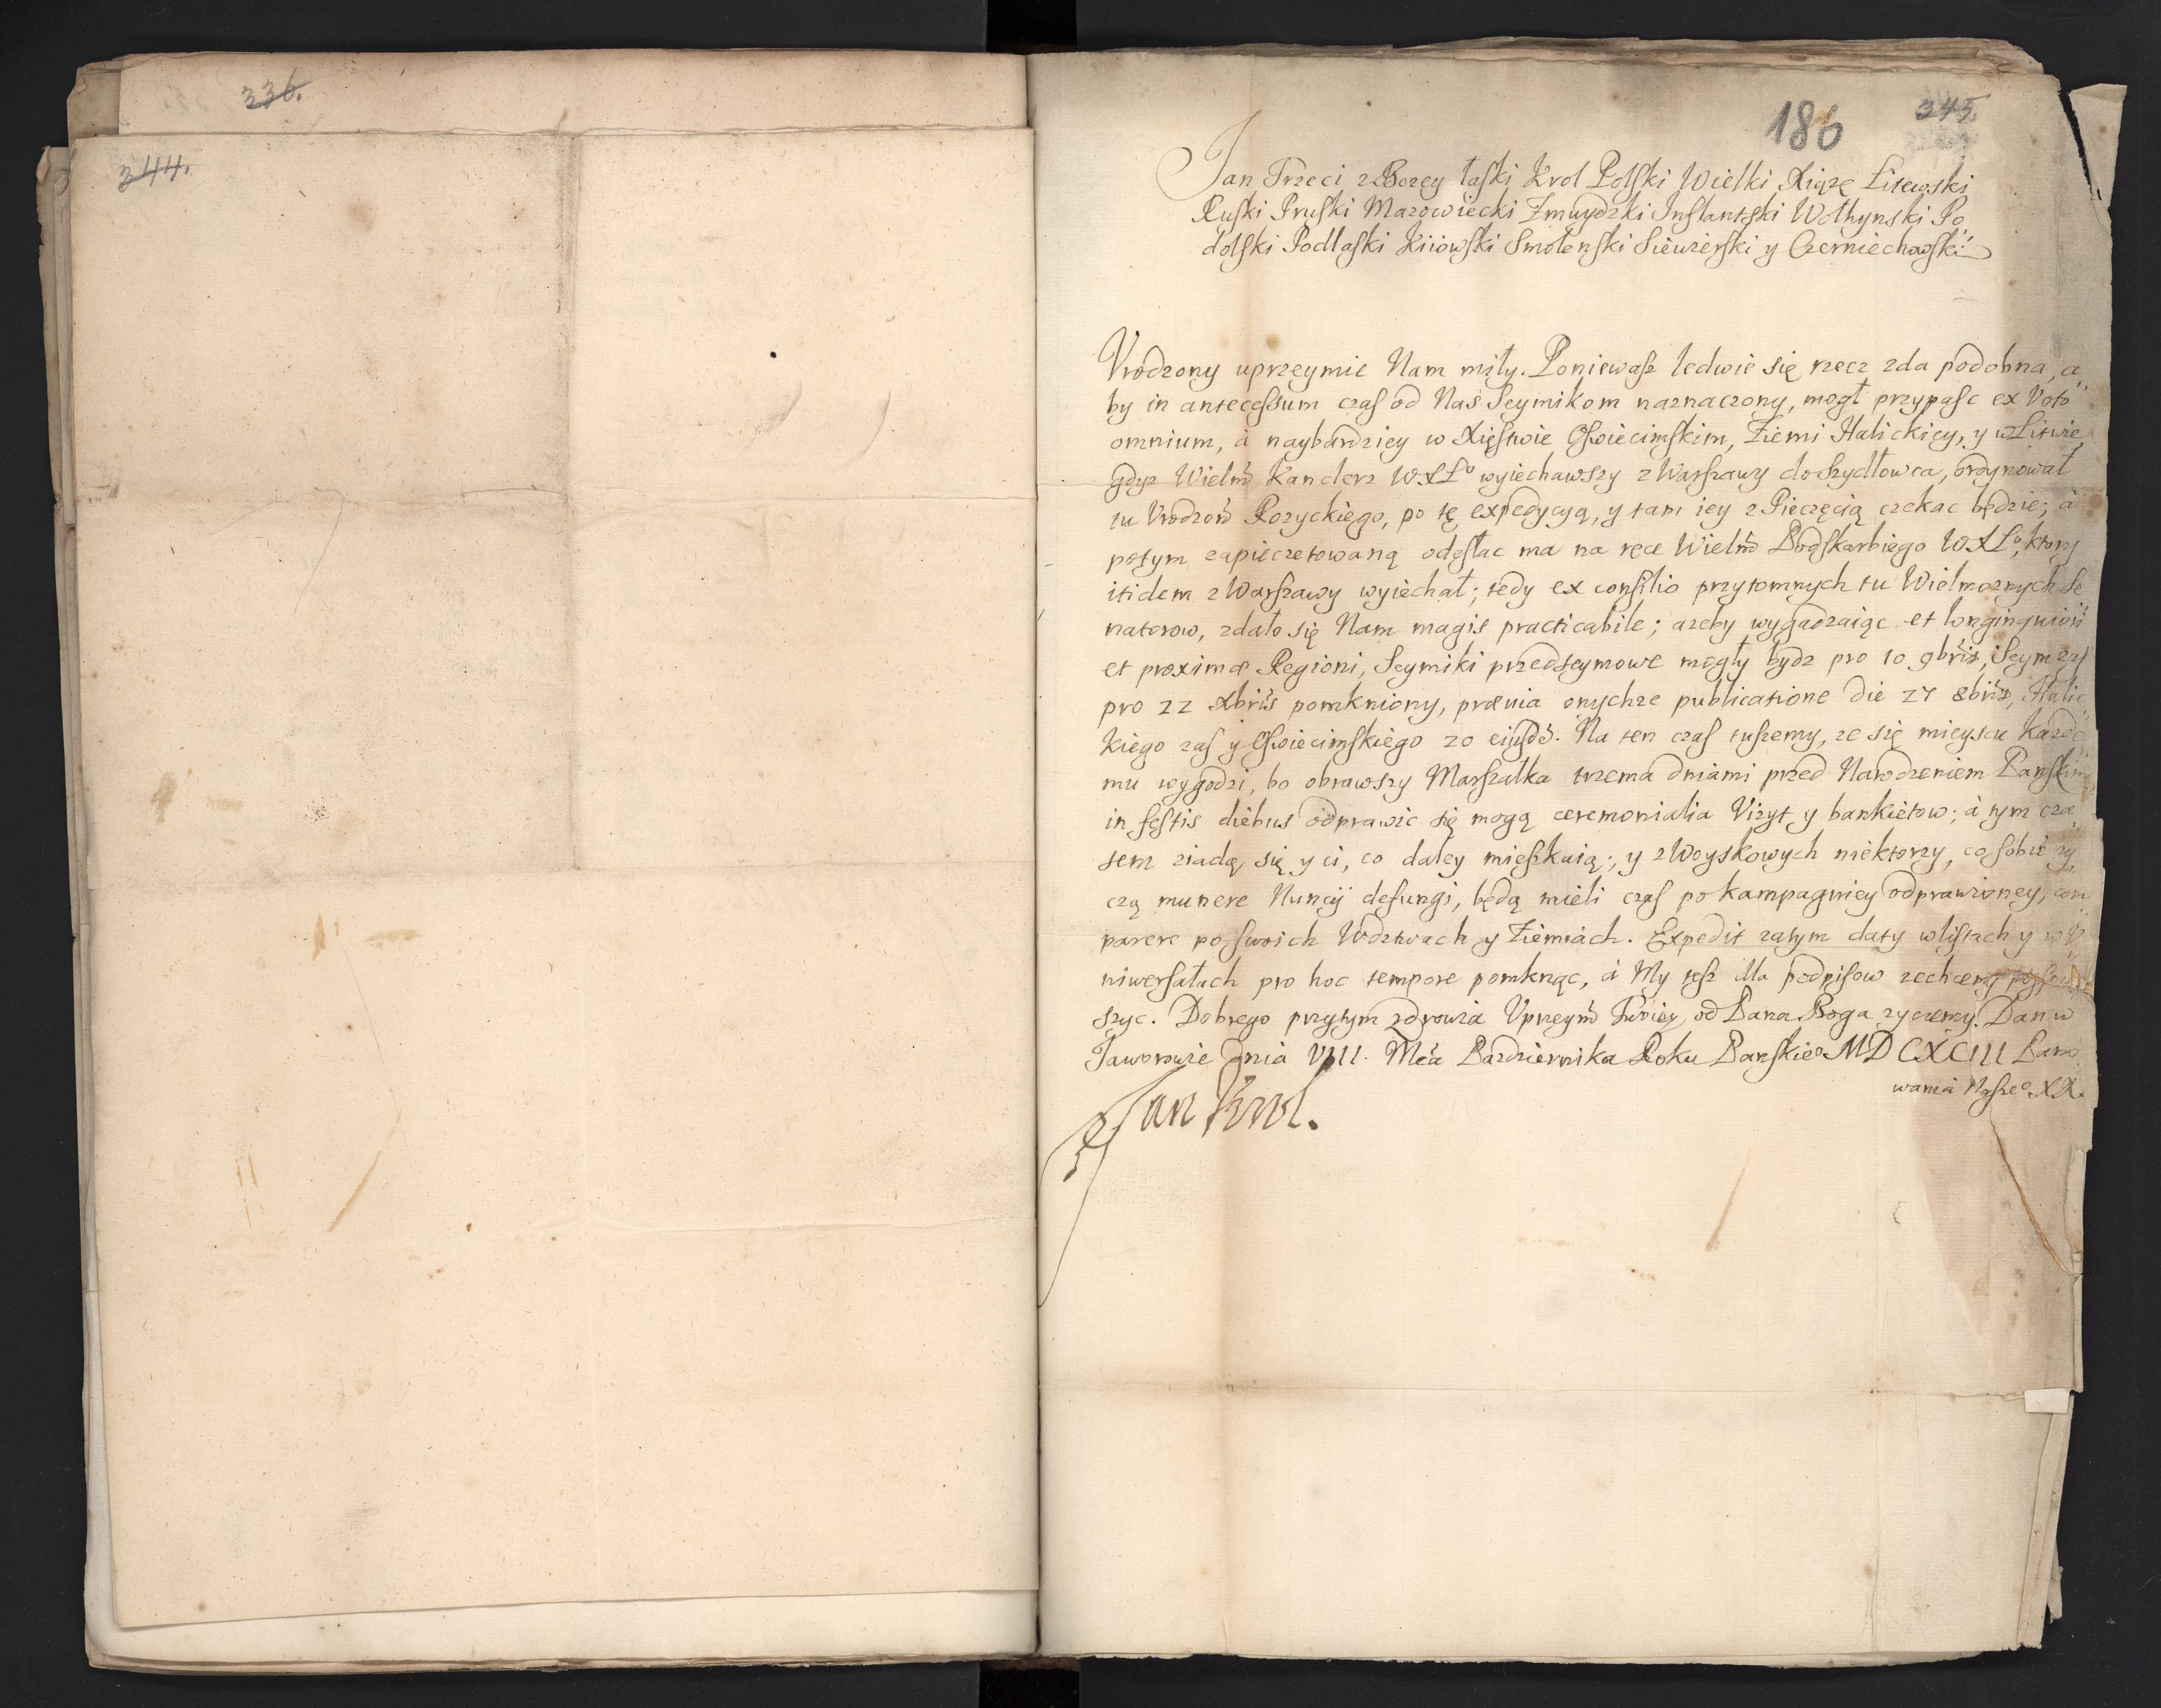 336.
344.
186
345.
Jan Trzeci z Bozey łaski Krol Polski Wielki Xiąze Litewski
Ruski Pruski Mazowiecki Zmuydzki Inflantski Wołhynski Po„
dolski Podlaski Kiiowski Smolenski Siewierski y Czerniechowski.
Vrodzony uprzeymie Nam miły. Poniewasz ledwie się rzecz zda podobna, a„
by in antecessum czas od Nas Seymikom naznaczony, mogł przypasc ex Voto
omnium, à naybardziey w Xięstwie Oswiecimskim, Ziemi Halickiey, y w Litwie,
gdyz Wielmo Kanclerz WXLo wyiechawszy z Warszawy do Szydłowca, ordynował
tu Vrodzoo Rozyckiego, po tę expedycyą, y tam iey z Pieczęcią czekac będzie; à
potym zapieczetowaną odesłac ma na ręce Wielmo Podskarbiego WXLo, ktory
itidem z Warszawy wyiechał; tedy ex consilio przytomnych tu Wielmoznych Se„
natorow, zdało się Nam magis practicabile; azeby wygadzaiąc et longinquiori
et proximæ Regioni, Seymiki przedseymowe mogły bydz pro 10 9bris, Seym zas
pro 22 Xbris pomkniony, prævia onychze publicatione die 27 8bris, Halic„
kiego zas y Oswiecimskiego 20 eiusde. Na ten czas tuszemy, ze się mieyscu kazde„
mu wygodzi, bo obrawszy Marszałka trzema dniami przed Narodzeniem Panskim,
in festis diebus odprawic się mogą ceremonialia Vizyt y bankietow; à tym cza„
sem ziadą się y ci, co daley mieszkaią; y z Woyskowych niektorzy, co sobie zy„
czą munere Nuncÿ defungi, będą mieli czas po kampagniey odprawioney, com„
parere po swoich Wdztwach y Ziemiach. Expedit zatym daty w listach y w V„
niwersałach pro hoc tempore pomknąc, à My tesz dla podpisow zechcemy pospie„
szyc. Dobrego przytym zdrowia Vprzeymo Twoiey od Pana Boga zyczemy. Dan w
Jaworowie dnia VIII. Mca Pazdziernika Roku Panskieo MDCXCIII Pano„
wania Naszeo XX.
Jan Krol.